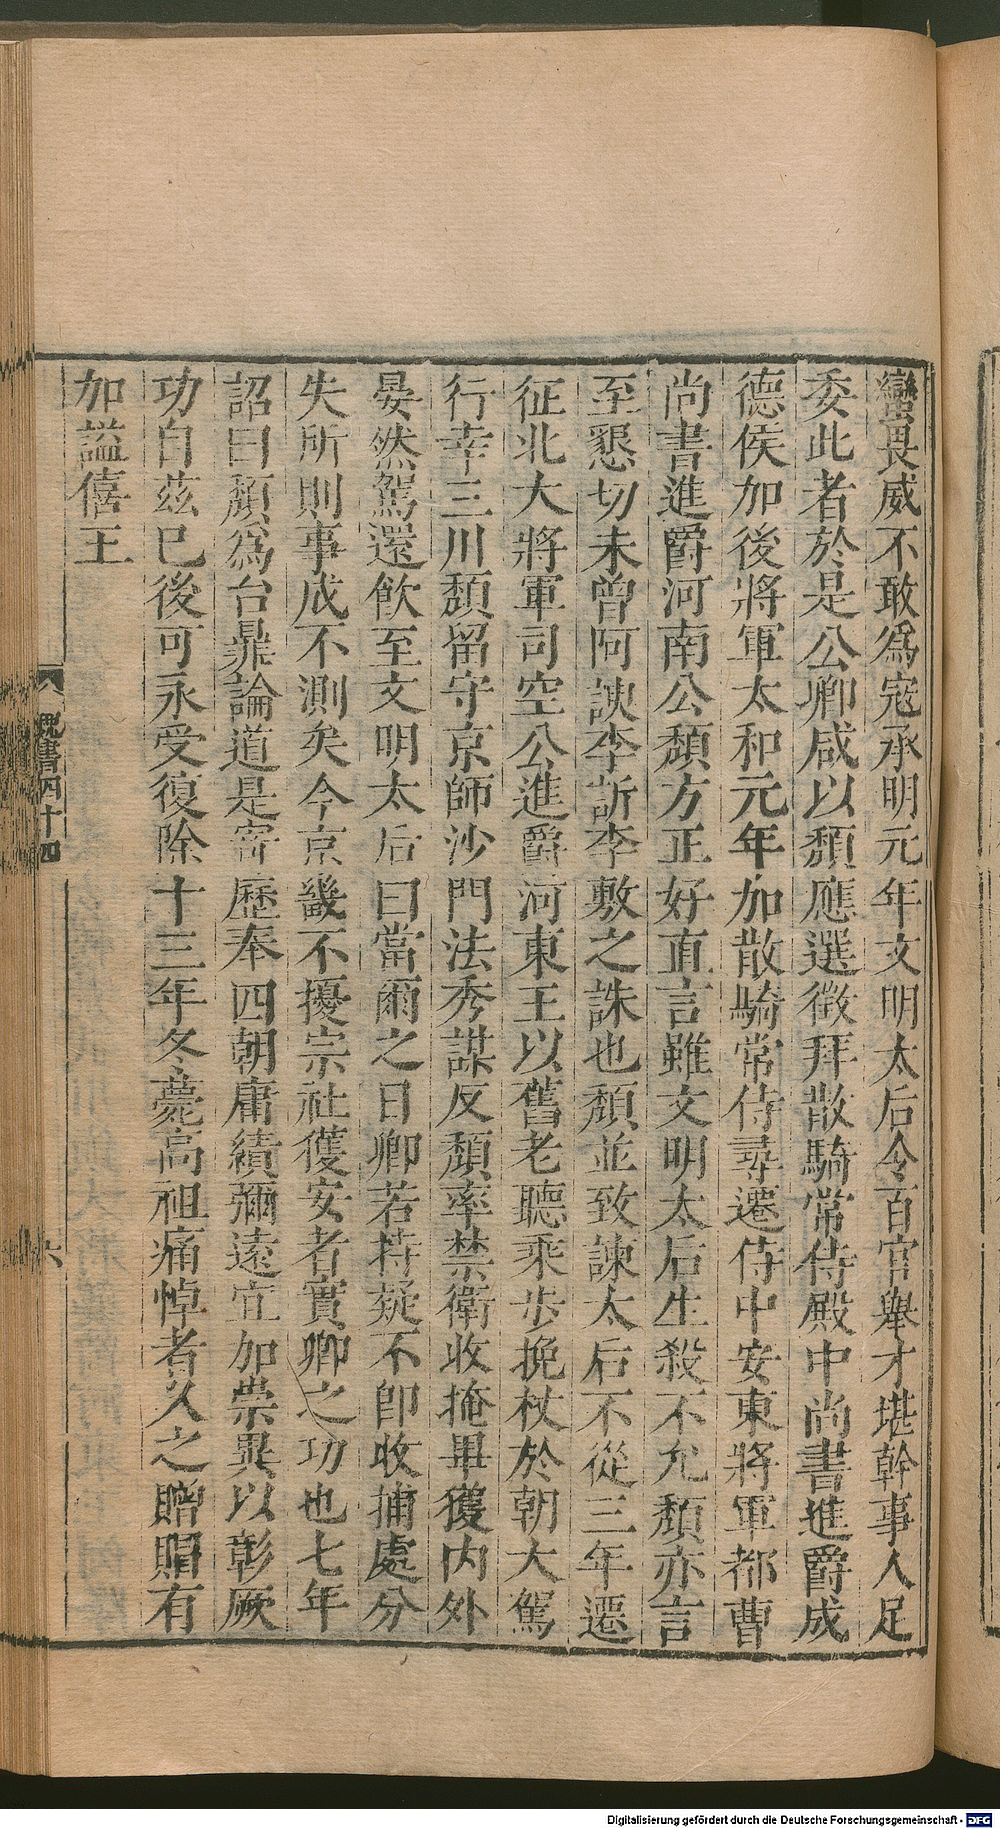 蠻畏威不敢爲寇承明元年文明太后令百官舉才堪幹事人足
委此者於是公卿咸以頹應選徵拜散騎常侍殿中尚書進爵成
德侯加後將軍太和元年加散騎常侍尋遷侍中安東將軍都曹
尚書進爵河南公頹方正好直言雖文明太后生殺不允頹亦言
至懇切未曾阿諛李訢李敷之誅也頹並致諫太后不從三年遷
征北大將軍司空公進爵河東王以舊老聽乘步挽杖於朝大駕
行幸三川頹留守京師沙門法秀謀反頹率禁衛收掩畢獲內外
晏然駕還飲至文明太后曰當爾之日卿若持疑不卽收捕處分
失所則事成不測矣今京畿不擾宗社獲安者實卿之功也七年
詔曰頹爲台鼎論道是寄歷奉四朝庸績彌遠宜加崇異以彰厥
功自茲已後可永受復除十三年冬薨高祖痛悼者久之贈賵有
加謚僖王
魏書四十四
六
Digitalisierung gefördert durch die Deutsche Forschungsgemeinschaft - DFG